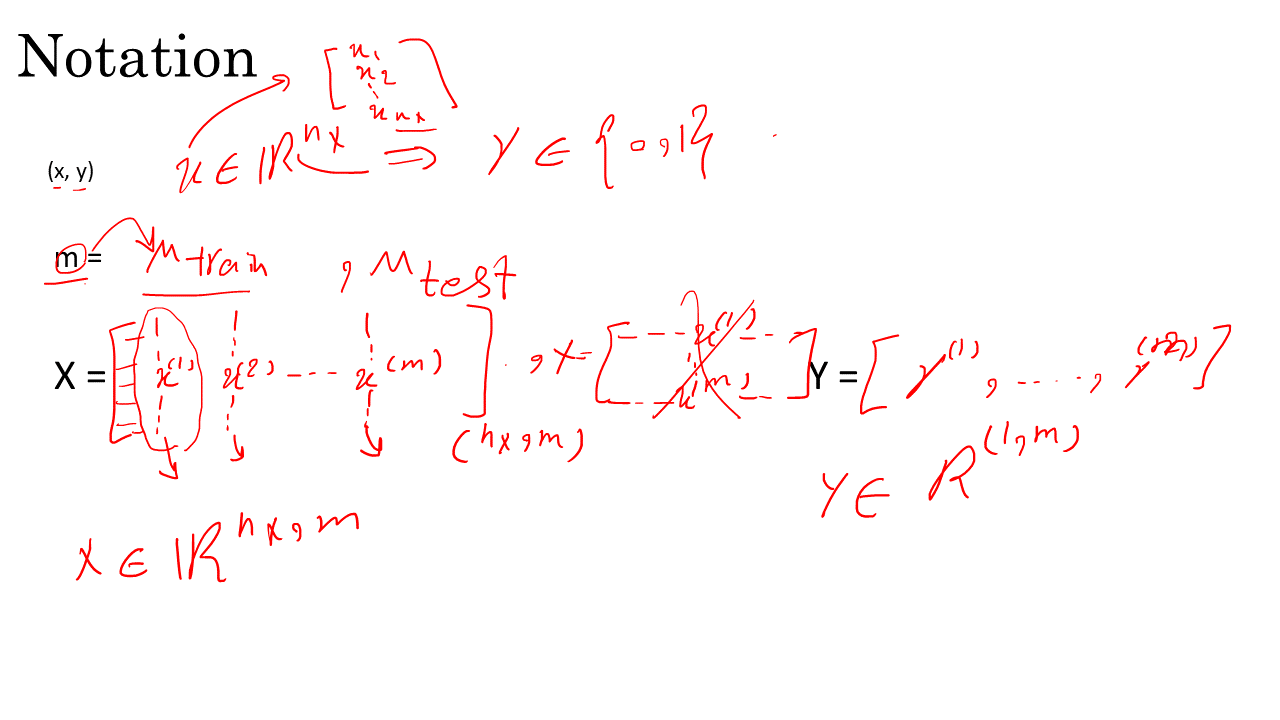 Notation
[x₁ x₂ ⋮ xₙₓ]
(x, y) x ∈ ℝ^nx ⇒ y ∈ {0,1}
m = m train , m test
X = [x^(1) x^(2) ---- x^(m)] (nx, m) , X = [---x^(1)--- ⋮ ---x^(m)---] Y = [y^(1), ....., y^(m)]
Y ∈ R^(1,m)
X ∈ ℝ^nx,m